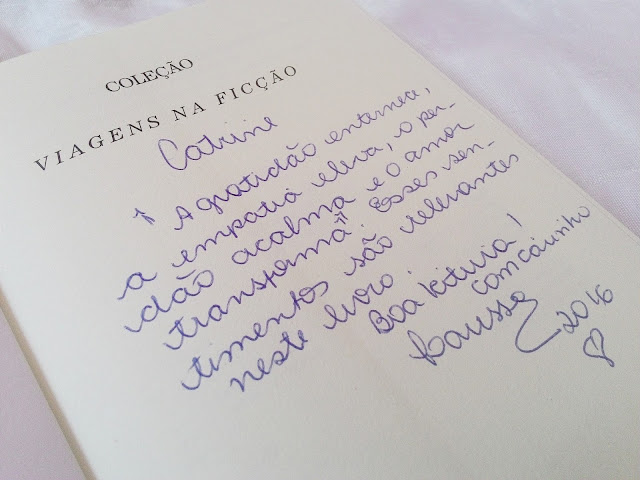 COLEÇÃO
VIAGENS NA FICÇÃO
Catrine
" A gratidão enternece,
a empatia eleva, o per-
dão acalma e o amor
transforma". Esses sen-
timentos são relevantes
neste livro.
Boa leitura!
com carinho
2016